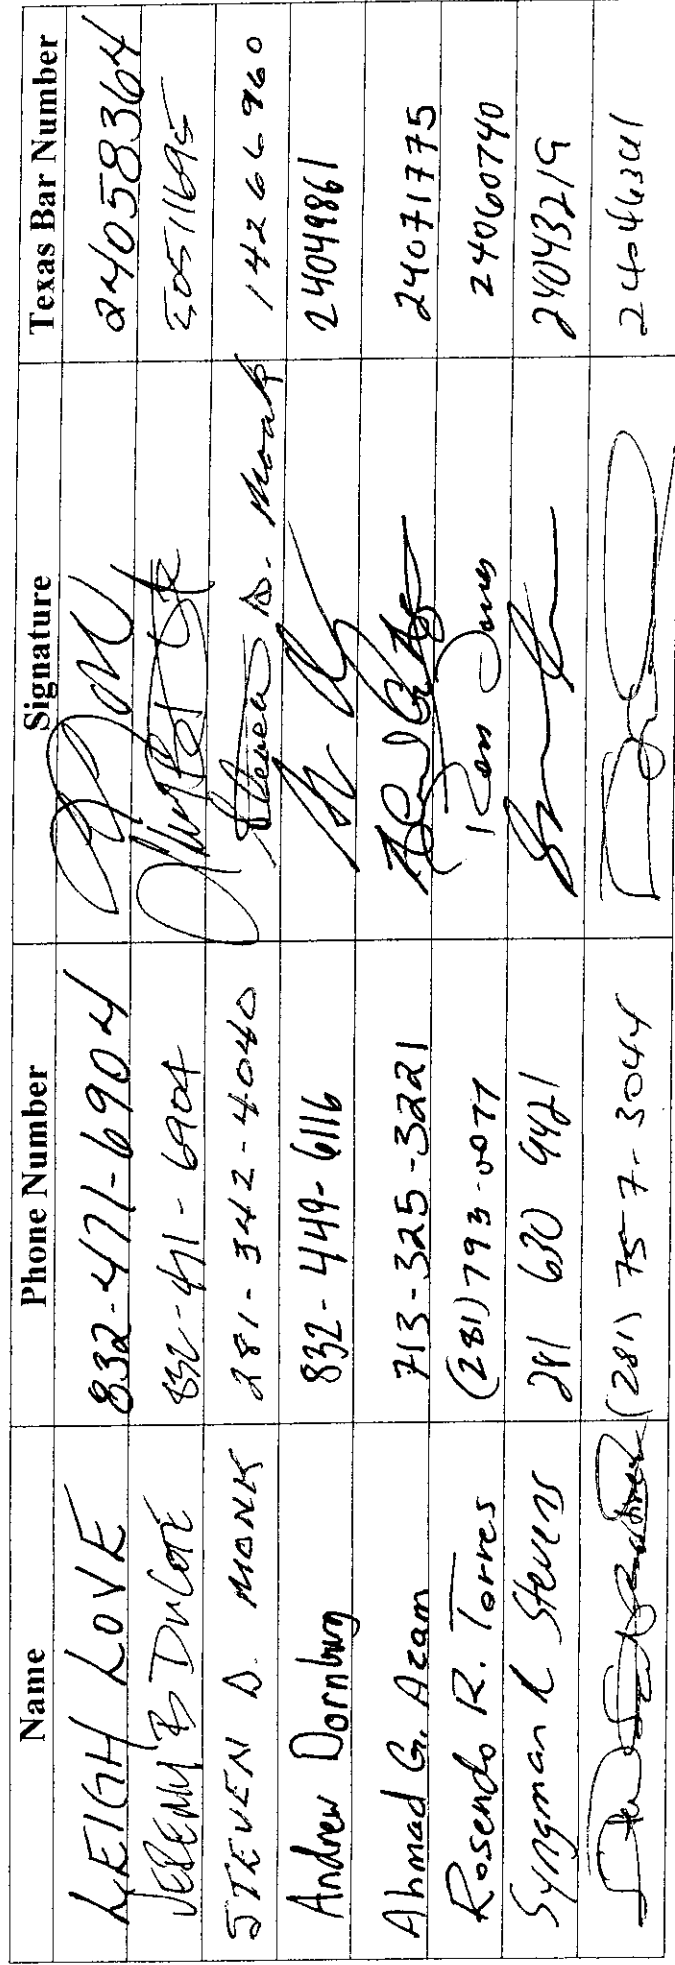 Name Phone Number Signature Texas Bar Number
LEIGH LOVE 832-471-6904 24058364
JEREMY B DuCOTE 832-471-6904
STEVEN D. MONK 281-342-4040 Steven D. Monk 14266960
Andrew Dornburg 832-449-6116 24049861
Ahmad G. Azam 713-325-3221 24071775
Rosendo R. Torres (281) 793-0077 24060740
Syngman R Stevens 281 630 9421 24043219
(281) 757-3044